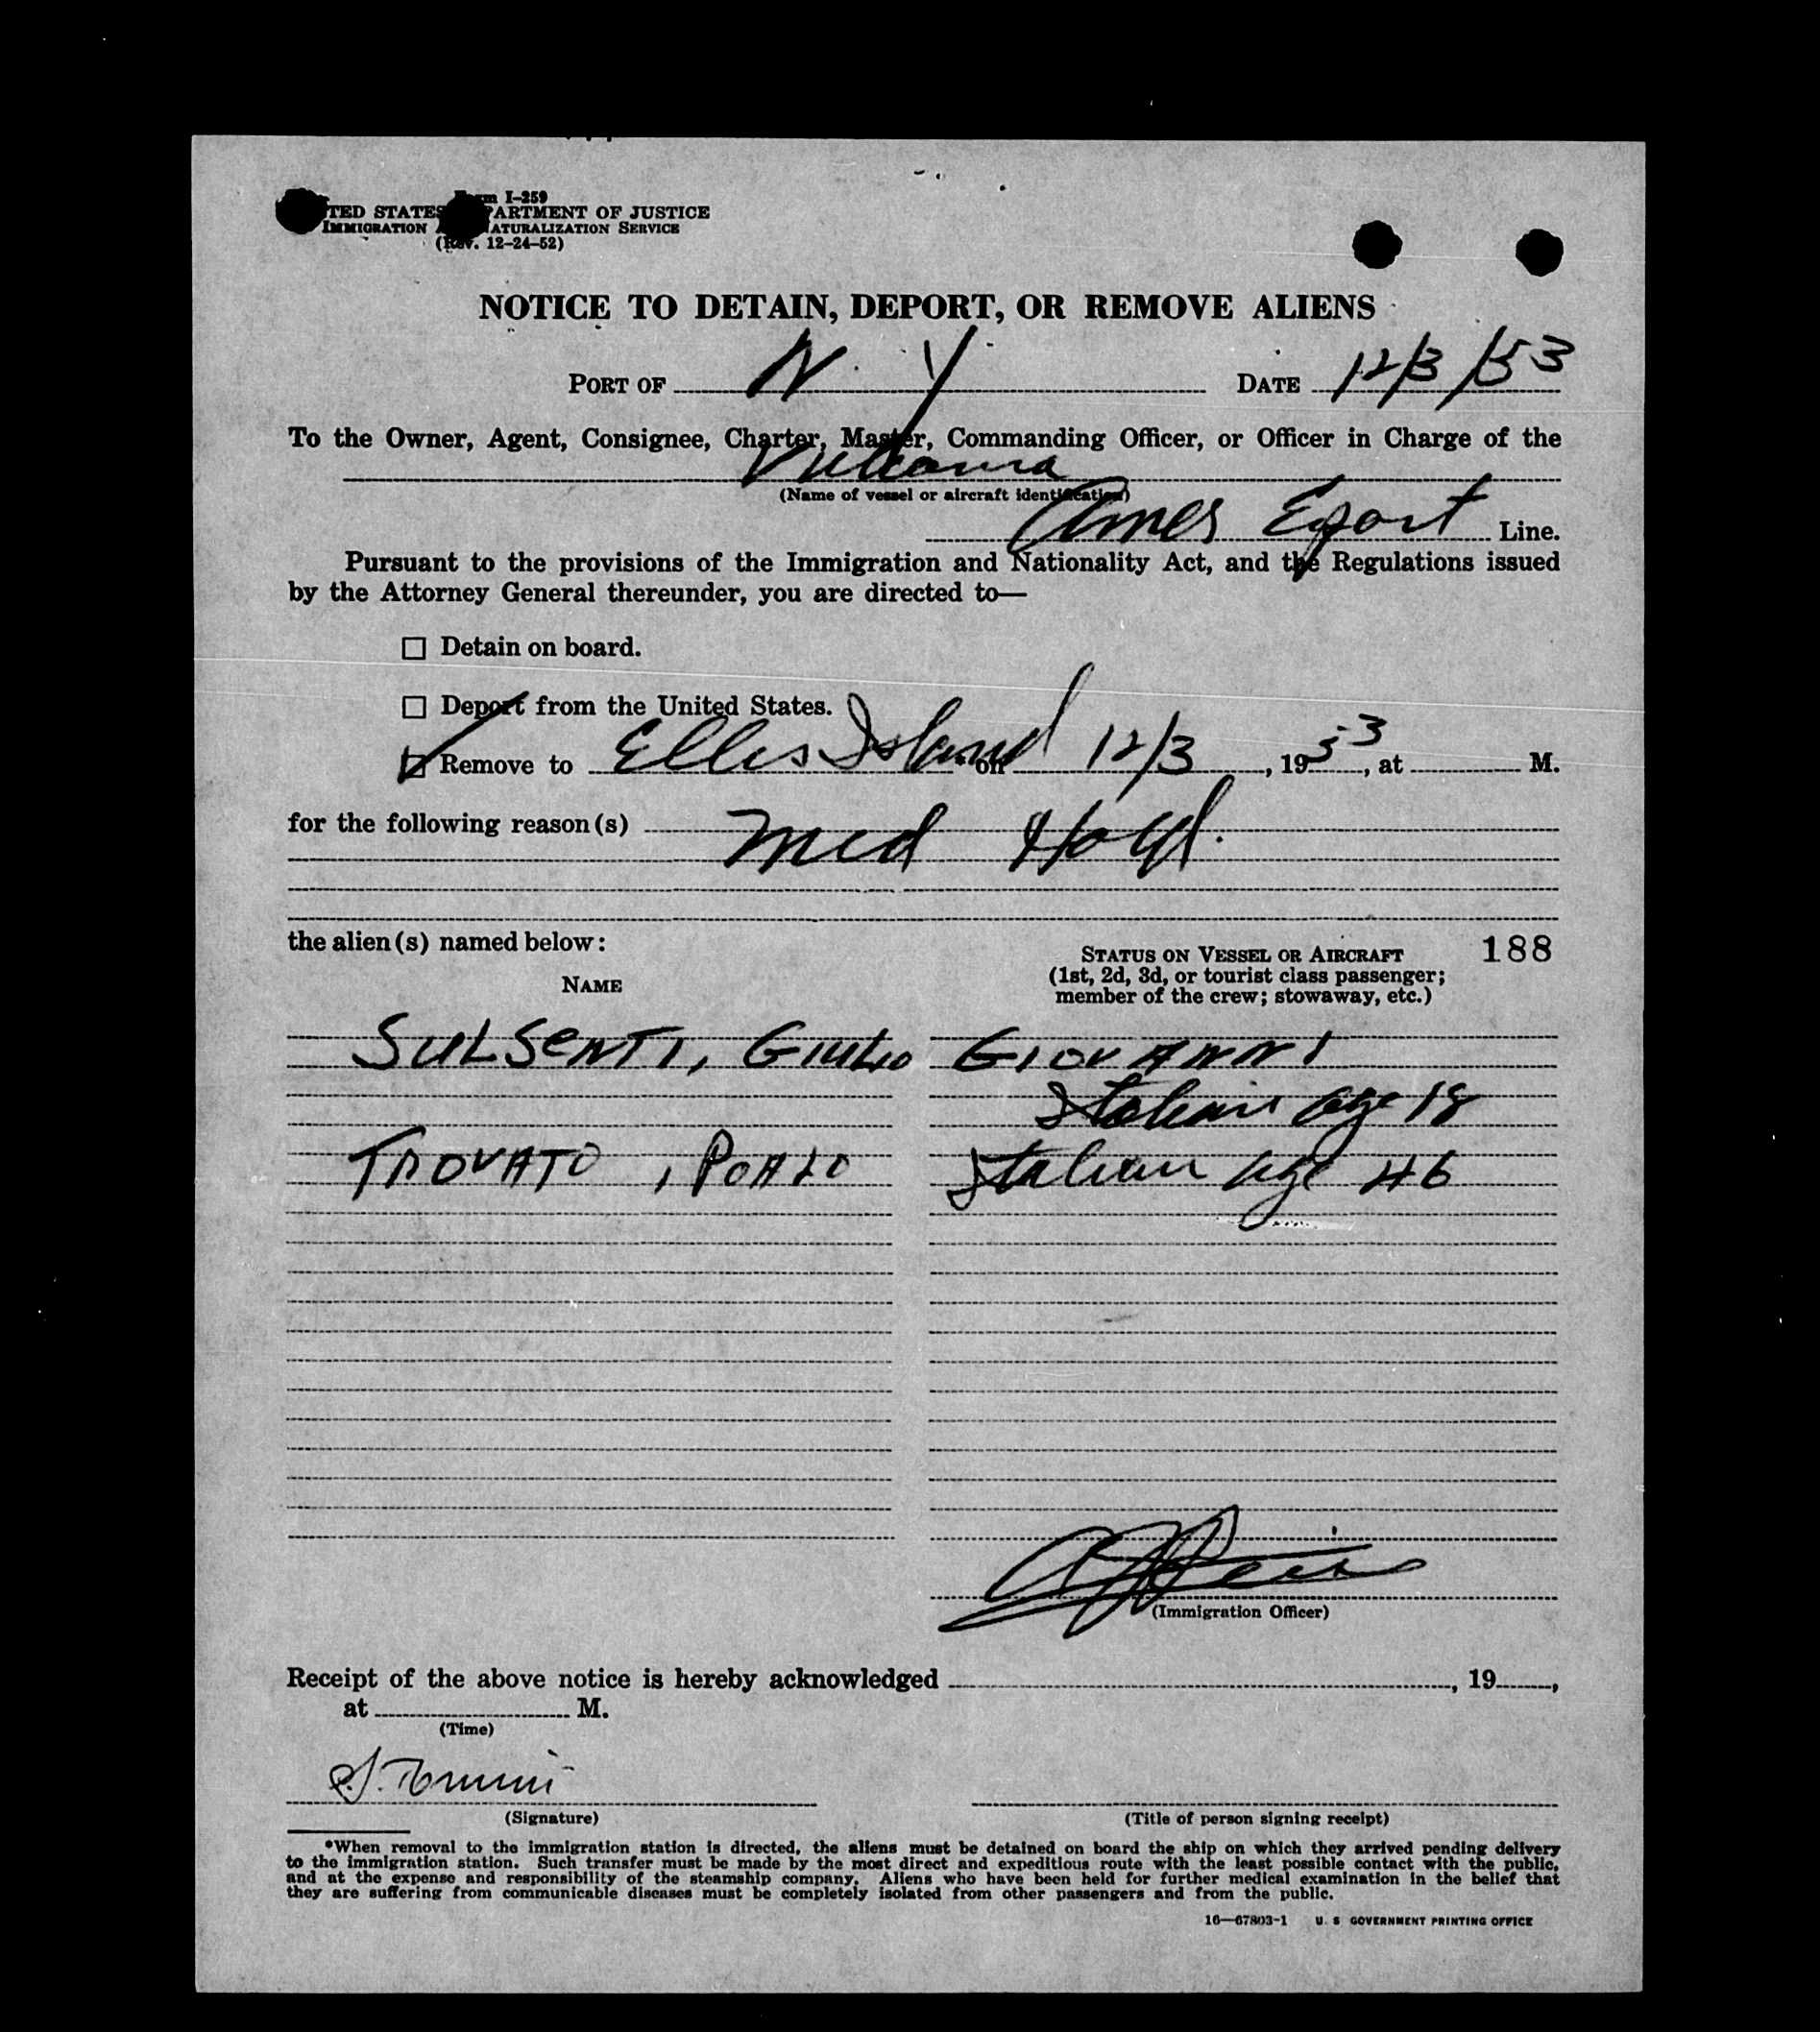 Form I-259
UNITED STATES DEPARTMENT OF JUSTICE
IMMIGRATION AND NATURALIZATION SERVICE
(Rev. 12-24-52)
NOTICE TO DETAIN, DEPORT, OR REMOVE ALIENS
PORT OF N. Y DATE 12/3/53
To the Owner, Agent, Consignee, Charter, Master, Commanding Officer, or Officer in Charge of the
Vulcania
(Name of vessel or aircraft identification)
Amer Export Line.
Pursuant to the provisions of the Immigration and Nationality Act, and the Regulations issued
by the Attorney General thereunder, you are directed to—
Detain on board.
Deport from the United States.
Remove to Ellis Island on 12/3, 1953, at M.
for the following reason(s)
Med
the alien(s) named below:
188
NAME
STATUS ON VESSEL OR AIRCRAFT
(1st, 2d, 3d, or tourist class passenger;
member of the crew; stowaway, etc.)
SULSENTI, GIULIO GIOVANNI
Italian age 18
TROVATO, POALO Italian age 46
(Immigration Officer)
Receipt of the above notice is hereby acknowledged , 19 ,
at M.
(Time)
(Signature)
(Title of person signing receipt)
*When removal to the immigration station is directed, the aliens must be detained on board the ship on which they arrived pending delivery
to the immigration station. Such transfer must be made by the most direct and expeditious route with the least possible contact with the public,
and at the expense and responsibility of the steamship company. Aliens who have been held for further medical examination in the belief that
they are suffering from communicable diseases must be completely isolated from other passengers and from the public.
16—67803-1 U. S GOVERNMENT PRINTING OFFICE